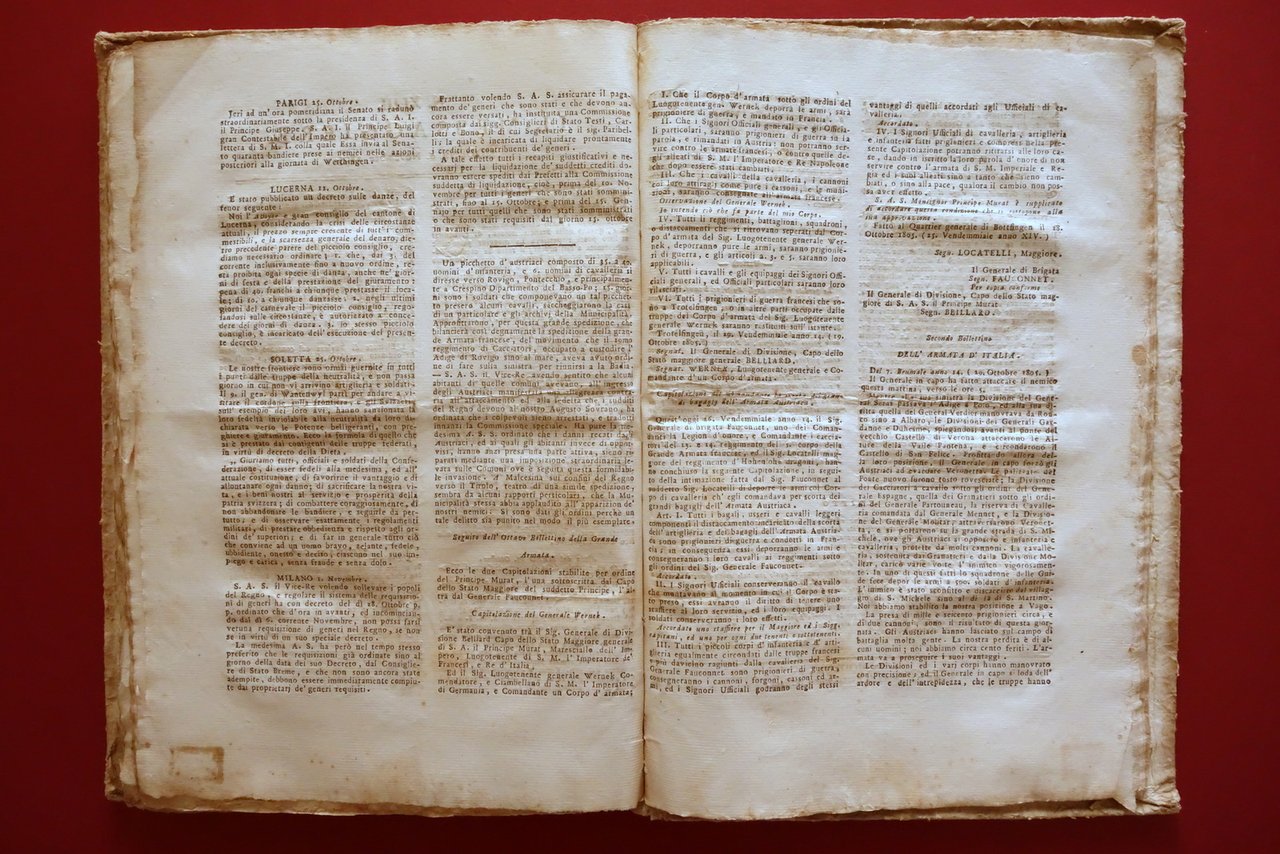 PARIGI 25. Ottobre.
Jeri ad un'ora pomeridiana il Senato si radunò
straordinariamente sotto la presidenza di S. A. I.
il Principe Giuseppe. S. A. I. il Principe Luigi
gran Contestabile dell'Impero ha presentato una
lettera di S. M. I. colla quale Essa invia al Sena-
to quaranta bandiere prese ai nemici nelle azioni
posteriori alla giornata di Werthingen.
LUCERNA 12. Ottobre.
E stato pubblicato un decreto sulle danze, del
tenor seguente:
Noi l'Avoier e gran consiglio del cantone di
Lucerna, considerando la crisi delle circostanze
attuali, il prezzo sempre crescente di tutt'i com-
mestibili, e la scarsezza generale del denaro, die-
tro precedente parere del piccolo consiglio, cre-
diamo necessario ordinare: 1. che, dai 3. del
corrente inclusivamente fino a nuovo ordine, re-
sta proibita ogni specie di danza, anche ne' gior-
ni di festa e della prestazione del giuramento:
pena di 40. franchi a chiunque prestasse il loca-
le; di 10. a chiunque danzasse: 2. negli ultimi
giorni del carnevale il piccolo consiglio, rego-
landosi sulle circostanze, è autorizzato a conce-
dere dei giorni di danza. 3. lo stesso piccolo
consiglio, è incaricato dell'esecuzione del presen-
te decreto.
SOLETTA 25. Ottobre.
Le nostre frontiere sono ormai guernite in tutt'
i punti dalle truppe della neutralità, e non passa
giorno in cui non vi arrivino artiglieria e soldati.
Il 9. il gen. di Wattenwyl partì per andare a vi-
sitare il cordone sulla frontiera; e gli Svizzeri
sull'esempio dei loro avi, hanno santificata la
loro fedeltà inviolabile alla neutralità stata di-
chiarata verso le Potenze belligeranti, con pre-
ghiere e giuramento. Ecco la formola di quello che
si è prestato dai contigenti delle truppe federali,
in virtù di decreto della Dieta.
„ Giuriamo tutti, officiali e soldati della Confe-
derazione, di esser fedeli alla medesima, ed all'
attuale costituzione, di favorirne il vantaggio e di
allontanare ogni danno; di sacrificare la nostra vi-
ta, e i beni nostri al servizio e prosperità della
patria svizzera; di combattere coraggiosamente, di
non abbandonare le bandiere, e seguirle da per-
tutto; e di osservare esattamente i regolamenti
militari, di prestare obbedienza e rispetto agli or-
dini de' superiori; e di far in generale tutto ciò
che conviene ad un uomo bravo, zelante, fedele,
ubbidiente, onesto e deciso; ciascuno nel suo im-
piego e carica, senza fraude e senza dolo.
MILANO 1. Novembre.
S. A. S. il Vice-Re volendo sollevare i popoli
del Regno, e regolare il sistema delle requisizio-
ni di generi ha con decreto del dì 28. Ottobre p.
p. ordinato che d'ora in avanti, ed incomincian-
do dal dì 5. corrente Novembre, non possa farsi
veruna requisizione di generi nel Regno, se non
se in virtù di un suo speciale decreto.
La medesima A. S. ha però nel tempo stesso
preferito che le requisizioni già ordinate sino al
giorno della data del suo Decreto, dal Consiglie-
re di Stato Breme, e che non sono ancora state
adempite, debbono essere immediatamente compiu-
te dai proprietarj de' generi requisiti.
Frattanto volendo S. A. S. assicurare il paga-
mento de' generi che sono stati e che devono an-
cora essere versati, ha instituita una Commissione
composta dai sigg. Consiglieri di Stato Testi, Car-
lotti e Bono, il di cui Segretario è il sig. Paribel-
li; la quale è incaricata di liquidare prontamente
i crediti dei contribuenti de' generi.
A tale effetto tutti i recapiti giustificativi e ne-
cessarj per la liquidazione de' suddetti crediti do-
vranno essere diretti dai Prefetti alla Commissione
suddetta di liquidazione, cioè, prima del 20. No-
vembre per tutti i generi che sono stati sommini-
strati, fino al 25. Ottobre; e prima del 25. Gen-
najo per tutti quelli che sono stati somministrati
o che sono stati requisiti dal giorno 25. ottobre
in avanti.
Un picchetto d'austriaci composto di 35. a 40.
uomini d'infanteria, e 6. uomini di cavalleria si
diresse verso Rovigo, Pontecchio, e principalmen-
te a Crespino Dipartimento del Basso-Po; 15. gior-
ni sono i soldati che componevano un tal picchetto
presero alcuni cavalli, saccheggiarono la casa
di un particolare e gli archivj della Municipalità.
Approfittarono, per questa grande spedizione, che
bilancierà così degnamente la spedizione della gran-
de Armata francese, del movimento che il 1mo
reggimento di Cacciatori, occupato a custodire l'
Adige da Rovigo sino al mare, aveva avuto ordi-
ne di fare sulla sinistra per riunirsi a la Badia
— S. A. S. il Vice-Re avendo sentito che alcuni
abitanti di quelle comuni avevano, all'ingresso
degli Austriaci manifestati dei sentimenti contrarj
all'attaccamento ed alla fedeltà che i sudditi
del Regno devono al nostro Augusto Sovrano, ha
ordinato che i colpevoli siano arrestati e tradotti
innanzi la Commissione speciale. Ha pure la
medesima A. S. S. ordinato che i danni recati dagli
Austriaci, ed ai quali gli abitanti invece d'oppor-
visi, hanno anzi presa una parte attiva, siano ri-
parati mediante una imposizione straordinaria le-
vata sulle Comuni ove è seguita questa formidabi-
le invasione. A Malcesina sui confini del Regno
verso il Tirolo, teatro di una simile spedizione,
sembra da alcuni rapporti particolari, che la Mu-
nicipalità stessa abbia applaudito all'apparizione de'
nostri nemici. Si sono dati gli ordini perchè un
tale delitto sia punito nel modo il più esemplare.
Seguito dell'Ottavo Bullettino della Grande
Armata.
Ecco le due Capitolazioni stabilite per ordine
del Principe Murat, l'una sottoscritta dal Capo
dello Stato Maggiore del suddetto Principe, l'al-
tra dal Generale Fauconnet.
Capitolazione del Generale Wernek.
E' stato convenuto tra il Sig. Generale di Divi-
sione Belliard Capo dello Stato Maggiore generale
di S. A. il Principe Murat, Maresciallo dell'Im-
pero, Luogotenente di S. M. l'Imperatore de'
Francesi, e Re d'Italia,
Ed il Sig. Luogotenente generale Wernek Co-
mendatore, e Ciambellano di S. M. l'Imperatore
di Germania, e Comandante un Corpo d'armata;
I. Che il Corpo d'armata sotto gli ordini del
Luogotenente gen. Wernek deporrà le armi, sarà
prigioniere di guerra, e mandato in Francia.
II. Che i Signori Officiali generali, e gli Officia-
li particolari, saranno prigionieri di guerra su
parola, e rimandati in Austria: non potranno ser-
vire contro le armate francesi, o contro quelle de-
gli alleati di S. M. l'Imperatore e Re Napoleone
che dopo essere stati cambiati.
III. Che i cavalli della cavalleria, i cannoni
coi loro attiragli come pure i cassoni, e le muni-
zioni, saranno consegnate all'armata francese.
Osservazione del Generale Wernek.
Io intendo ciò che fa parte del mio Corpo.
IV. Tutti li reggimenti, battaglioni, squadroni,
o distaccamenti che si ritrovano seperati dal Cor-
po d'armata del Sig. Luogotenente generale Wer-
nek, deporranno pure le armi, saranno prigionie-
ri di guerra, e gli articoli 2. 3. e 5. saranno loro
applicabili.
V. Tutti i cavalli e gli equipaggi dei Signori Offi-
ciali generali, ed Officiali particolari saranno loro
rilasciati.
VI. Tutti i prigionieri di guerra francesi che so-
no a Trotelfingen, o in altre parti occupate dalle
truppe del Corpo d'Armata del Sig. Luogotenente
generale Wernek saranno restituiti sull'istante.
Trotelfingen, il 25. Vendemiale anno 14. (19.
Ottobre 1805.)
Segnat. Il Generale di Divisione, Capo dello
Stato maggiore generale BELLIARD.
Segnar. WERNEK, Luogotenente generale e Co-
mandante d'un Corpo d'armata.
Capitolazione
di bagagli dell'Armata Austriaca.
Quest'oggi 26. Vendemmiale anno 14. il Sig.
Generale di brigata Fauconnet, uno dei Coman-
danti la Legion d'onore, e Comandante i caccia-
tori del 13. e 14. reggimento del 5. corpo della
Grande Armata francese, ed il Sig. Locatelli mag-
giore del reggimento d'Hohenlohe dragoni, han-
no conchiuso la seguente Capitolazione, in segui-
to della intimazione fatta dal Sig. Fauconnet al
suddetto Sig. Locatelli di deporre le armi col Cor-
po di cavalleria ch'egli comandava per scorta dei
grandi bagagli dell'Armata Austriaca.
Art. I. Tutti i bagali, usseri e cavalli leggeri
componenti il distaccamento incaricato della scorta
dell'artiglieria e dei bagagli dell'Armata Austriaca
sono prigionieri di guerra e condotti in Fran-
cia; in conseguenza essi deporranno le armi e
consegneranno i loro cavalli ai reggimenti sotto
gli ordini del Sig. Generale Fauconnet.
Accordato.
II. I Signori Ufficiali conserveranno il cavallo
che montavano al momento in cui il Corpo è sta-
to preso, essi avranno il diritto di tenere uno
staffiere al loro servizio, ed i loro equipaggi. I
soldati conserveranno i loro effetti.
Accordato uno staffiere per il Maggiore ed i Sigg.
capitani, ed uno per ogni due tenente o sottotenenti.
III. Tutti i piccoli corpi d'infanteria e d'arti-
glieria egualmente circondati dalle truppe francesi
e più davicino ragiunti dalla cavalleria del Sig.
Generale Fauconnet sono prigionieri di guerra,
consegneranno i cannoni, forgoni, cassoni ed ar-
mi, ed i Signori Ufficiali godranno degli stessi
vantaggi di quelli accordati agli Ufficiali di ca-
valleria.
Accordato.
IV. I Signori Ufficiali di cavalleria, artiglieria
e infanteria fatti prigionieri e compresi nella pre-
sente Capitolazione potranno ritirarsi alle loro ca-
se, dando in iscritto la loro parola d'onore di non
servire contro l'armata di S. M. Imperiale e Re-
gia ed i suoi alleati sino a tanto che siano cam-
biati, o sino alla pace, qualora il cambio non pos-
sa aver effetto.
S. A. S. Monsignor Principe Murat è supplicato
d'accordare questa condizione che si rimpone alla
sua approvazione.
Fatto al Quartier generale di Bottfingen il 18.
Ottobre 1805. (25. Vendemmiale anno XIV.)
Segn. LOCATELLI, Maggiore.
Il Generale di Brigata
Segn. FAUCONNET.
Per copia conforme
Il Generale di Divisione, Capo dello Stato mag-
giore di S. A. S. il Principe Murat
Segn. BEILLARD.
Secondo Bullettino
DELL'ARMATA D'ITALIA.
Dal 7. Brumale anno 14. (29. Ottobre 1805.)
Il Generale in capo ha fatto attaccare il nemico
questa mattina; verso le ore 5.
Mentre passava l'Adige a Polo, ed alla sua de-
stra quella del General Verdier manovrava da Ron-
co sino a Albaro, le Divisioni dei Generali Gar-
danne e Duhesme, sboccando avanti al Ponte del
vecchio Castello di Verona attaccarono le Al-
ture della Valle Pantena, e circondarono il
Castello di San Felice. Profittando allora del-
la loro posizione, il Generale in capo forzò gli
Austriaci ad evacuare Veronetta. Le palizzate del
Ponte nuovo furono tosto rovesciate; la Divisione
dei Cacciatori a cavallo sotto gli ordini del Gene-
rale Espagne, quella dei Granatieri sotto gli ordi-
ni del General Partouneau, la riserva di Cavalleria
comandata dal Generale Mermet, e la Divisione
del Generale Molitor, attraversarono Veronet-
ta, e si portarono su la grande strada di S. Mi-
chele, ove gli Austriaci si opposero e infanteria e
cavalleria, protette da molti cannoni. La cavalle-
ria, sostenuta dai Granatieri e dalla Divisione Mo-
litor, caricò varie volte l'inimico vigorosamen-
te. In uno di questi fatti lo squadrone delle Gui-
de fece depor le armi a 500. soldati d'infanteria.
L'inimico è stato sconfitto e discacciato dal villag-
gio di S. Michele sino al di là di S. Martino.
Noi abbiamo stabilito la nostra posizione a Vago.
La presa di mille e seicento prigionieri circa, e
di due cannoni, sono il risultato di questa gior-
nata. Gli Austriaci hanno lasciato sul campo di
battaglia molta gente. La nostra perdita è di al-
cuni uomini; noi abbiamo circa cento feriti. L'ar-
mata va a proseguire i suoi vantaggi.
Le Divisioni ed i vari corpi hanno manovrato
con precisione; ed il Generale in capo si loda dell'
ardore e dell'intrepidezza, che le truppe hanno